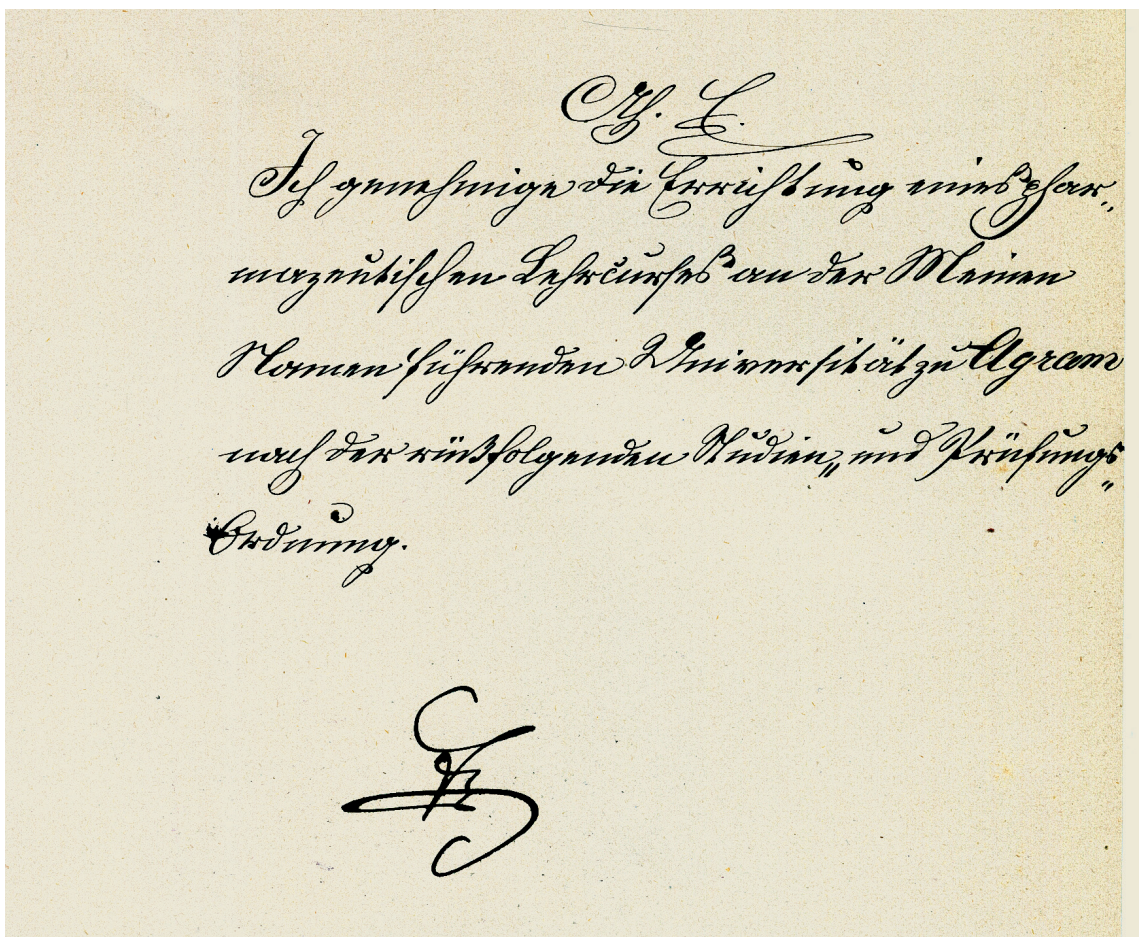 Ah. E.
Ich genehmige die Errichtung eines phar„
mazeutischen Lehrcurses an der Meinen
Namen führenden Universität zu Agram
nach der rückfolgenden Studien„ und Prüfungs„
Ordnung.